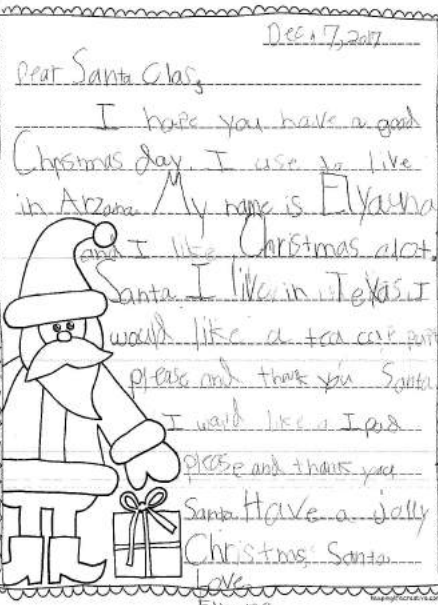 Dec. 7, 2017
Dear Santa Clas,
I hope you have a good
Chrismas day. I use to live
in Arzona. My name is Elyauna
and I like Christmas alot.
Santa I live in Texas. I
would like a tea cup
please and thank you Santa
I would like a Ipad
please and thank you
Santa Have a jolly
Christms, Santa
Love,